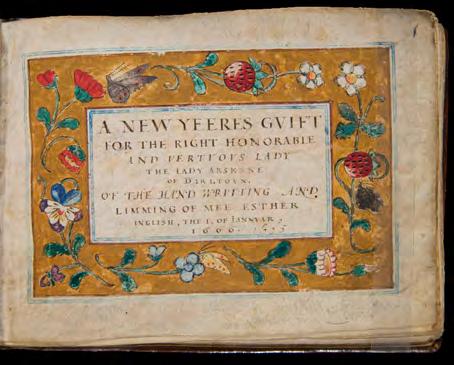 A NEW YEERES GVIFT
FOR THE RIGHT HONORABLE
AND VERTVOVS LADY
THE LADY ARSKENE
OF DIRLTOVN.
OF THE HAND WRITTING AND
LIMMING OF MEE ESTHER
INGLISH, THE I. OF IANVAR,
1606.